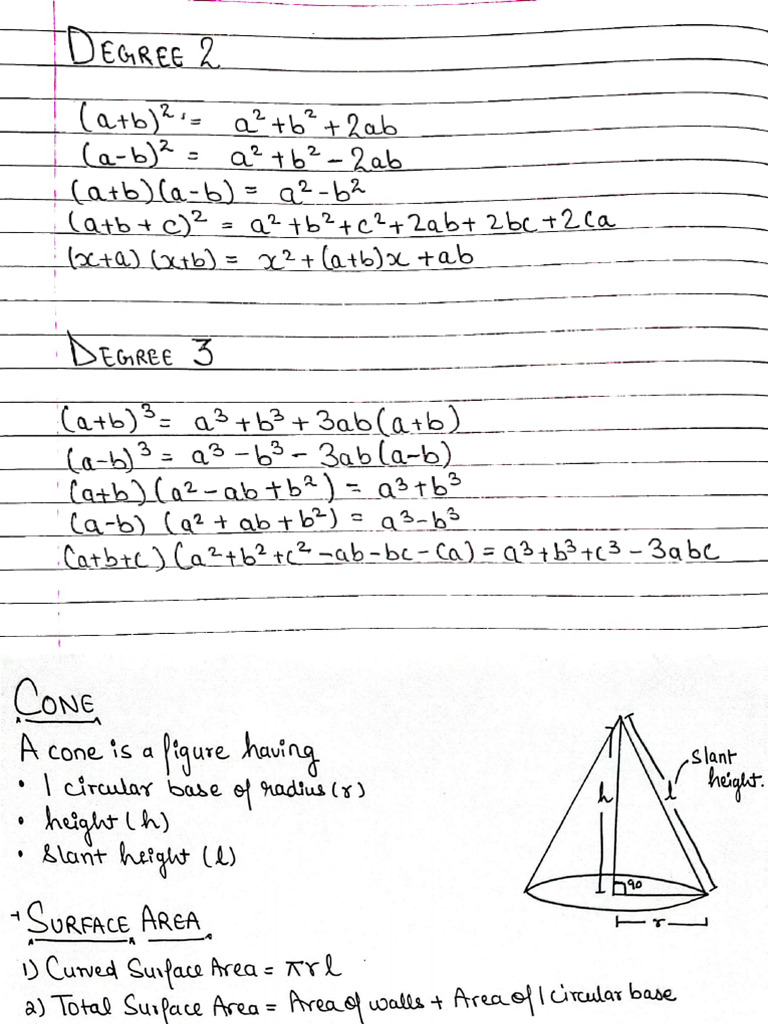 DEGREE 2
(a+b)² = a²+b²+2ab
(a-b)² = a²+b²-2ab
(a+b)(a-b) = a²-b²
(a+b+c)² = a²+b²+c²+2ab+2bc+2ca
(x+a)(x+b) = x²+(a+b)x+ab
DEGREE 3
(a+b)³ = a³+b³+3ab(a+b)
(a-b)³ = a³-b³-3ab(a-b)
(a+b)(a²-ab+b²) = a³+b³
(a-b)(a²+ab+b²) = a³-b³
(a+b+c)(a²+b²+c²-ab-bc-ca) = a³+b³+c³-3abc
CONE
A cone is a figure having
• 1 circular base of radius(r)
• height (h)
• Slant height (l)
h
l
slant
height.
90
r
SURFACE AREA
1) Curved Surface Area = πrl
2) Total Surface Area = Area of walls + Area of 1 circular base